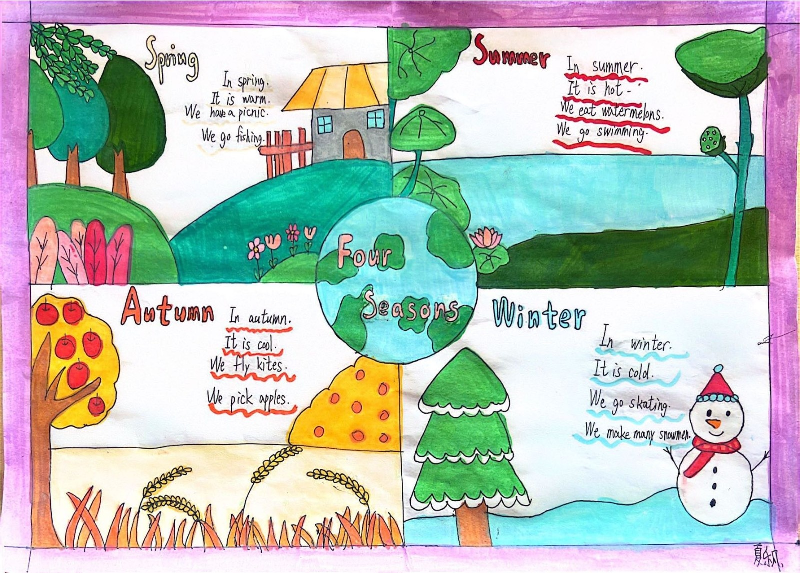 Spring
In spring.
It is warm.
We have a picnic.
We go fishing.
Summer
In summer.
It is hot.
We eat watermelons.
We go swimming.
Four
Seasons
Autumn
In autumn.
It is cool.
We fly kites.
We pick apples.
Winter
In winter.
It is cold.
We go skating.
We make many snowmen.